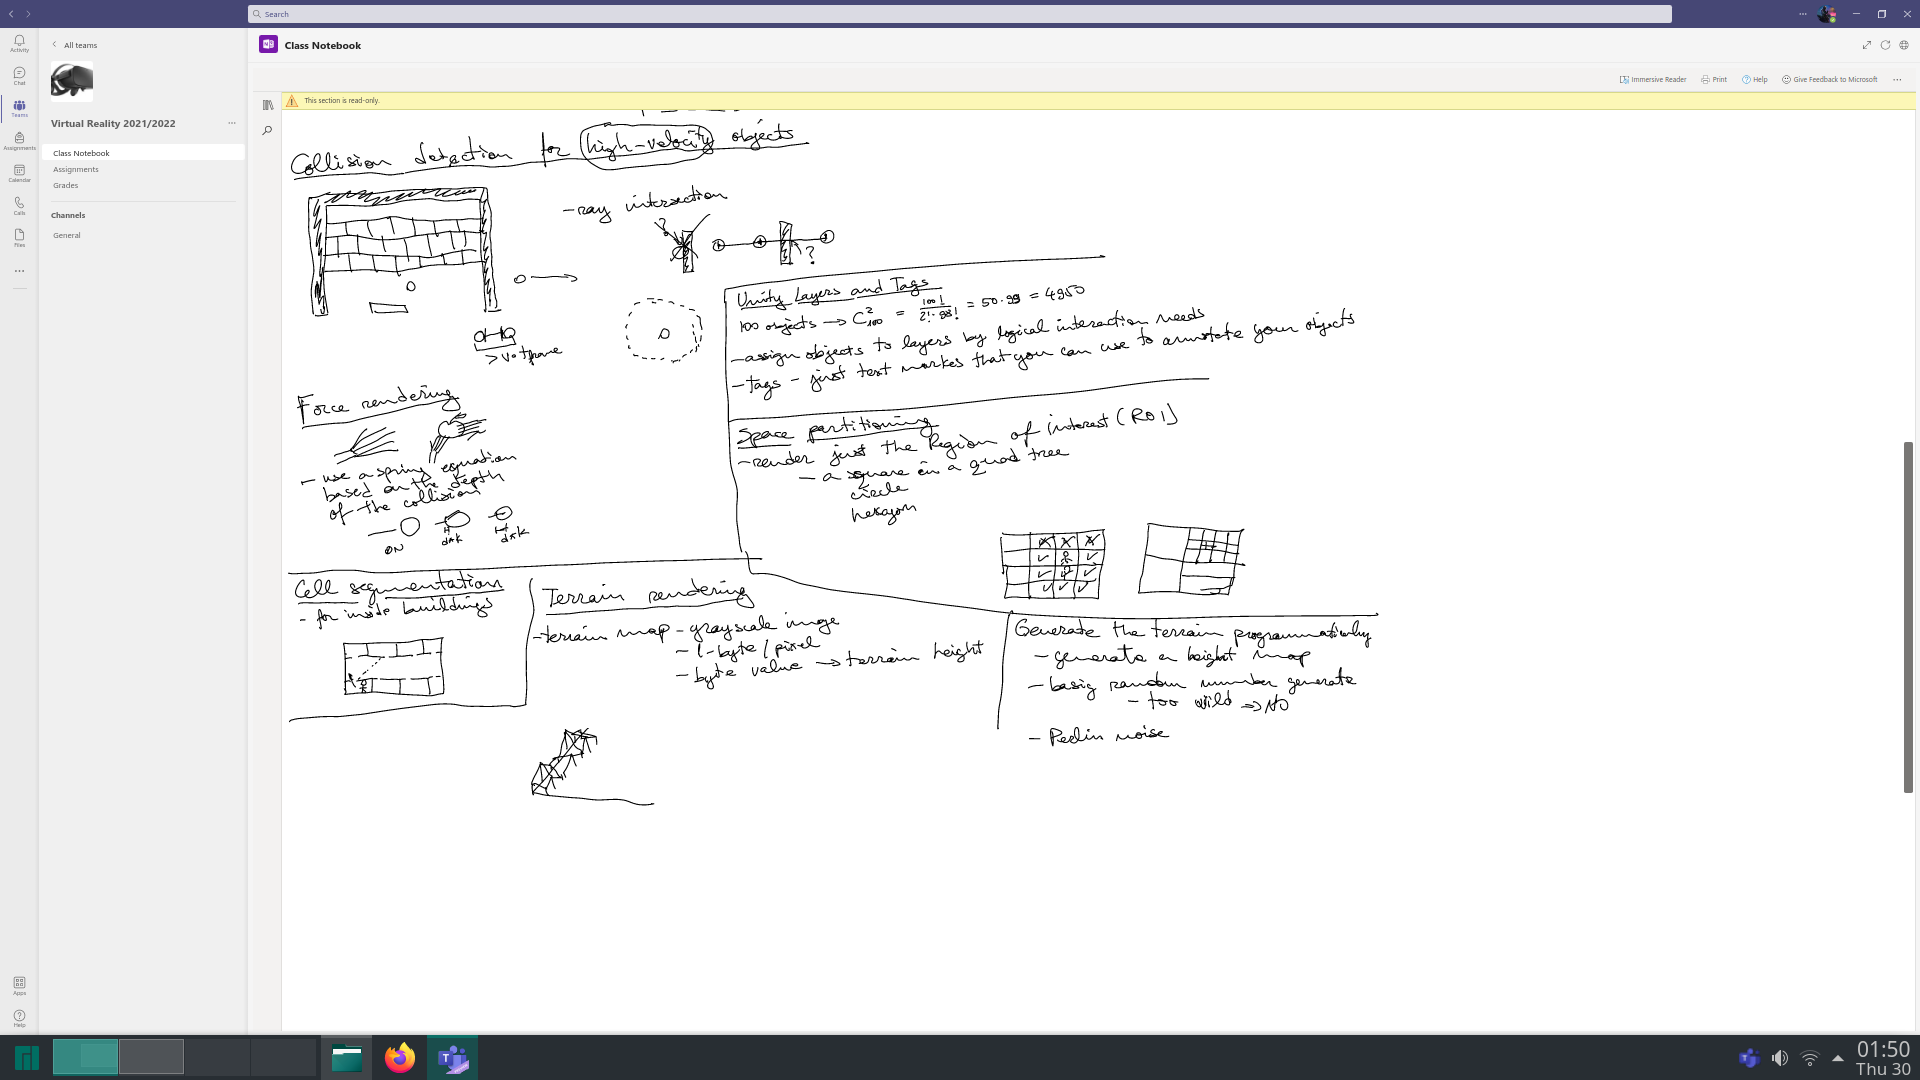 Search
Activity
Chat
Teams
Assignments
Calendar
Calls
Files
Apps
Help
All teams
Virtual Reality 2021/2022
Class Notebook
Assignments
Grades
Channels
General
Class Notebook
Immersive Reader
Print
Help
Give Feedback to Microsoft
This section is read-only.
Collision detection for high-velocity objects
- ray intersection
?
?
> v·t frame
Unity Layers and Tags
100 objects → C²₁₀₀ = 100!/2!·98! = 50·99 = 4950
- assign objects to layers by logical interaction needs
- tags - just text markes that you can use to annotate your objects
Force rendering
- use a spring equation
based on the depth
of the collision
ON
Space partitioning
- render just the Region of interest (ROI)
- a square in a quad tree
circle
hexagon
Cell segmentation
- for inside buildings
Terrain rendering
- terrain map - grayscale image
- 1-byte/pixel
- byte value → terrain height
Generate the terrain programmatically
- generate a height map
- basig random number generate
- too wild ⇒ NO
- Perlin noise
01:50
Thu 30